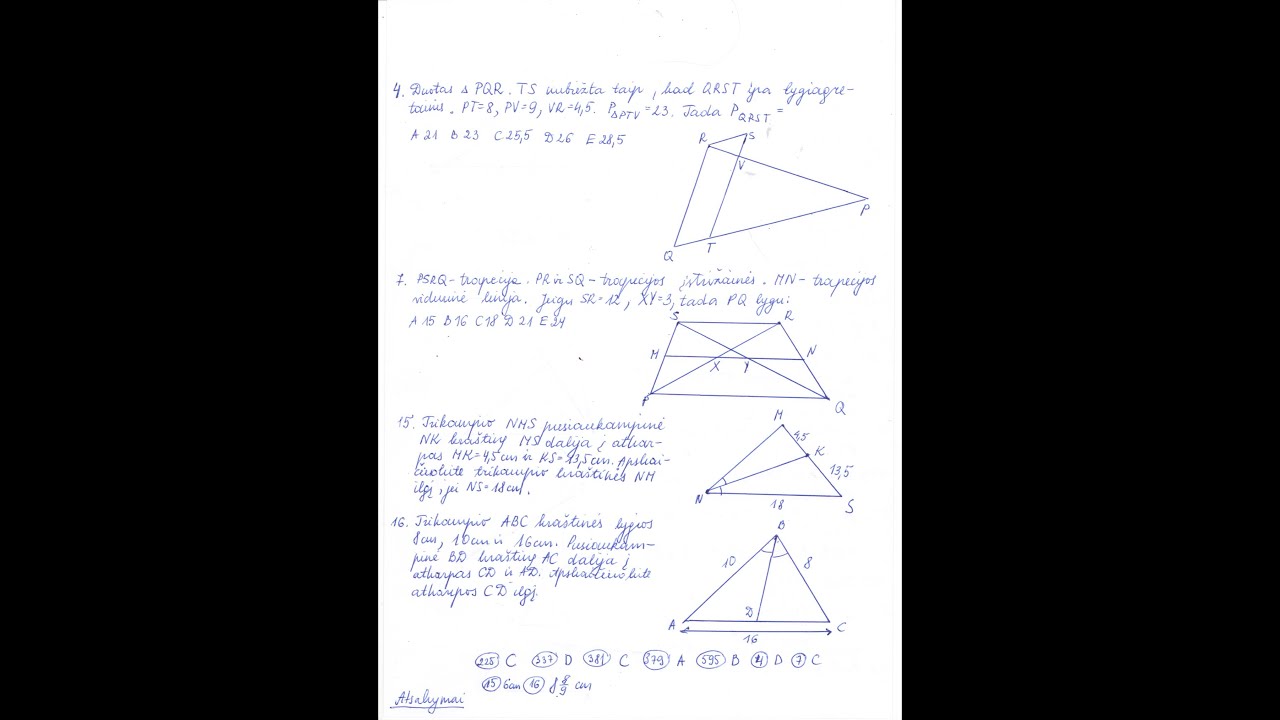 4. Duotas △ PQR. TS nubrėžta taip, kad QRST yra lygiagre-
tainis. PT=8, PV=9, VR=4,5. P△PTV=23. Tada PQRST=
A 21 B 23 C 25,5 D 26 E 28,5
R S
V
P
Q T
7. PSRQ-trapecija. PR ir SQ-trapecijos įstrižainės. MN-trapecijos
vidurinė linija. Jeigu SR=12, XY=3, tada PQ lygu:
A 15 B 16 C 18 D 21 E 24
S R
M N
X Y
P Q
15. Trikampio NMS pusiaukampinė
NK kraštinę MS dalija į atkar-
pas MK=4,5cm ir KS=13,5cm. Apskai-
čiuokite trikampio kraštinės NM
ilgį, jei NS=18cm.
M
4,5
K
13,5
N S
18
16. Trikampio ABC kraštinės lygios
8cm, 10cm ir 16cm. Pusiaukam-
pinė BD kraštinę AC dalija į
atkarpas CD ir AD. Apskaičiuokite
atkarpos CD ilgį.
B
10 8
D
A C
16
225 C 237 D 381 C 379 A 595 B 4 D 7 C
15 6cm 16 8 8/9 cm
Atsakymai